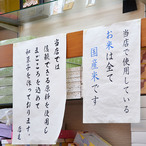 当店で使用している
お米は全て
国産米です
当店では
信頼できる原料を使用し
まごころを込めて
和菓子を
作っております。
店主